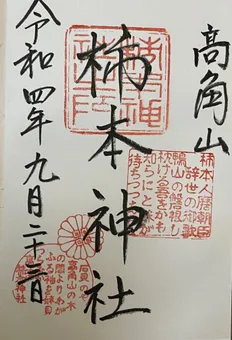 高角山
柿本神社
令和四年九月二十三日
柿本人麿朝臣
辞世の御歌
鴨山の磐根し
枕ける吾をかも
知らにと妹が
待ちつつ
石見のや
高角山の木
の間よりわが
ふる袖を妹見
つらむか